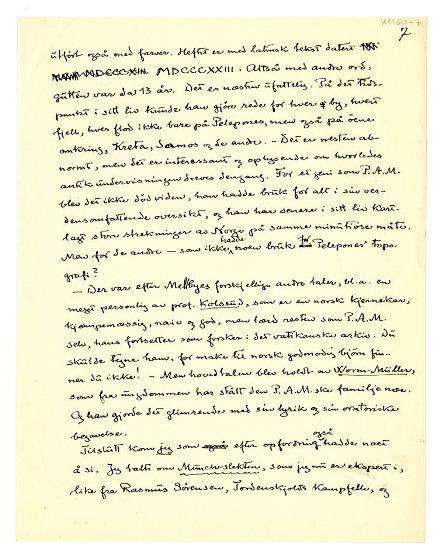 K1160-7
7
utført også med farver. Heftet er med latinsk tekst datert
MDCCCXXIII. Altså med andre ord,
gutten var da 13 år. Det er næsten ufattelig. På det tids-
punkt i sitt liv kunde han gjöre rede for hver by, hvert
fjell, hver flod ikke bare på Peleponnes, men også på öene
omkring, Kreta, Samos og de andre. – Det er nesten ab-
normt, men det er interessant og oplysende om hvorledes
antik undervisningen dreves dengang. For et geni som P.A.M.
blev det ikke död viden, han hadde bruk for alt i sin ver-
densomfattende oversikt, og han har senere i sitt liv kart-
lagt store strekninger av Norge på samme minutiöse måte.
Men for de andre – som ikke hadde noen bruk for Pelepones' topo-
grafi?
– Der var efter Mellbyes forskjellige andre taler, bl.a. en
meget personlig av prof. Kolsrud, som er en norsk kjernekar,
kjempemæssig, naiv og god, men lærd resten som P.A.M.
selv, hans fortsetter som forsker i det vatikanske arkiv. Du
skulde tegne ham, for make til norsk godmodig björn fin-
ner du ikke! – Men hovedtalen blev holdt av Worm-Müller,
som fra ungdommen har stått den P.A.M.ske familje nær.
Og han gjorde det glimrende med sin lyrik og sin oratoriske
begavelse.
Tilslutt kom jeg som også efter opfordring hadde noet
å si. Jeg talte om Munch-slekten, som jeg nu er ekspert i,
like fra Rasmus Sörensen, Tordenskjolds kampfelle, og